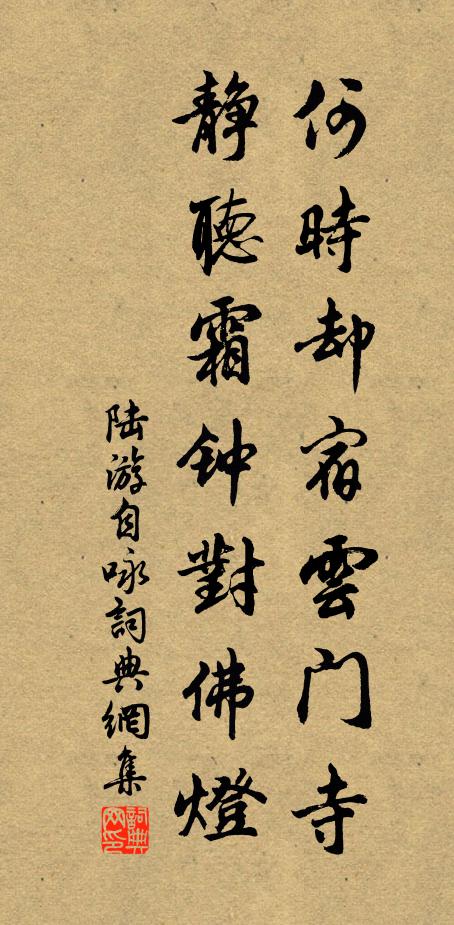 何時却宿雲门寺
静聽霜钟對佛燈
陆游自咏詞典網集
詞典网印